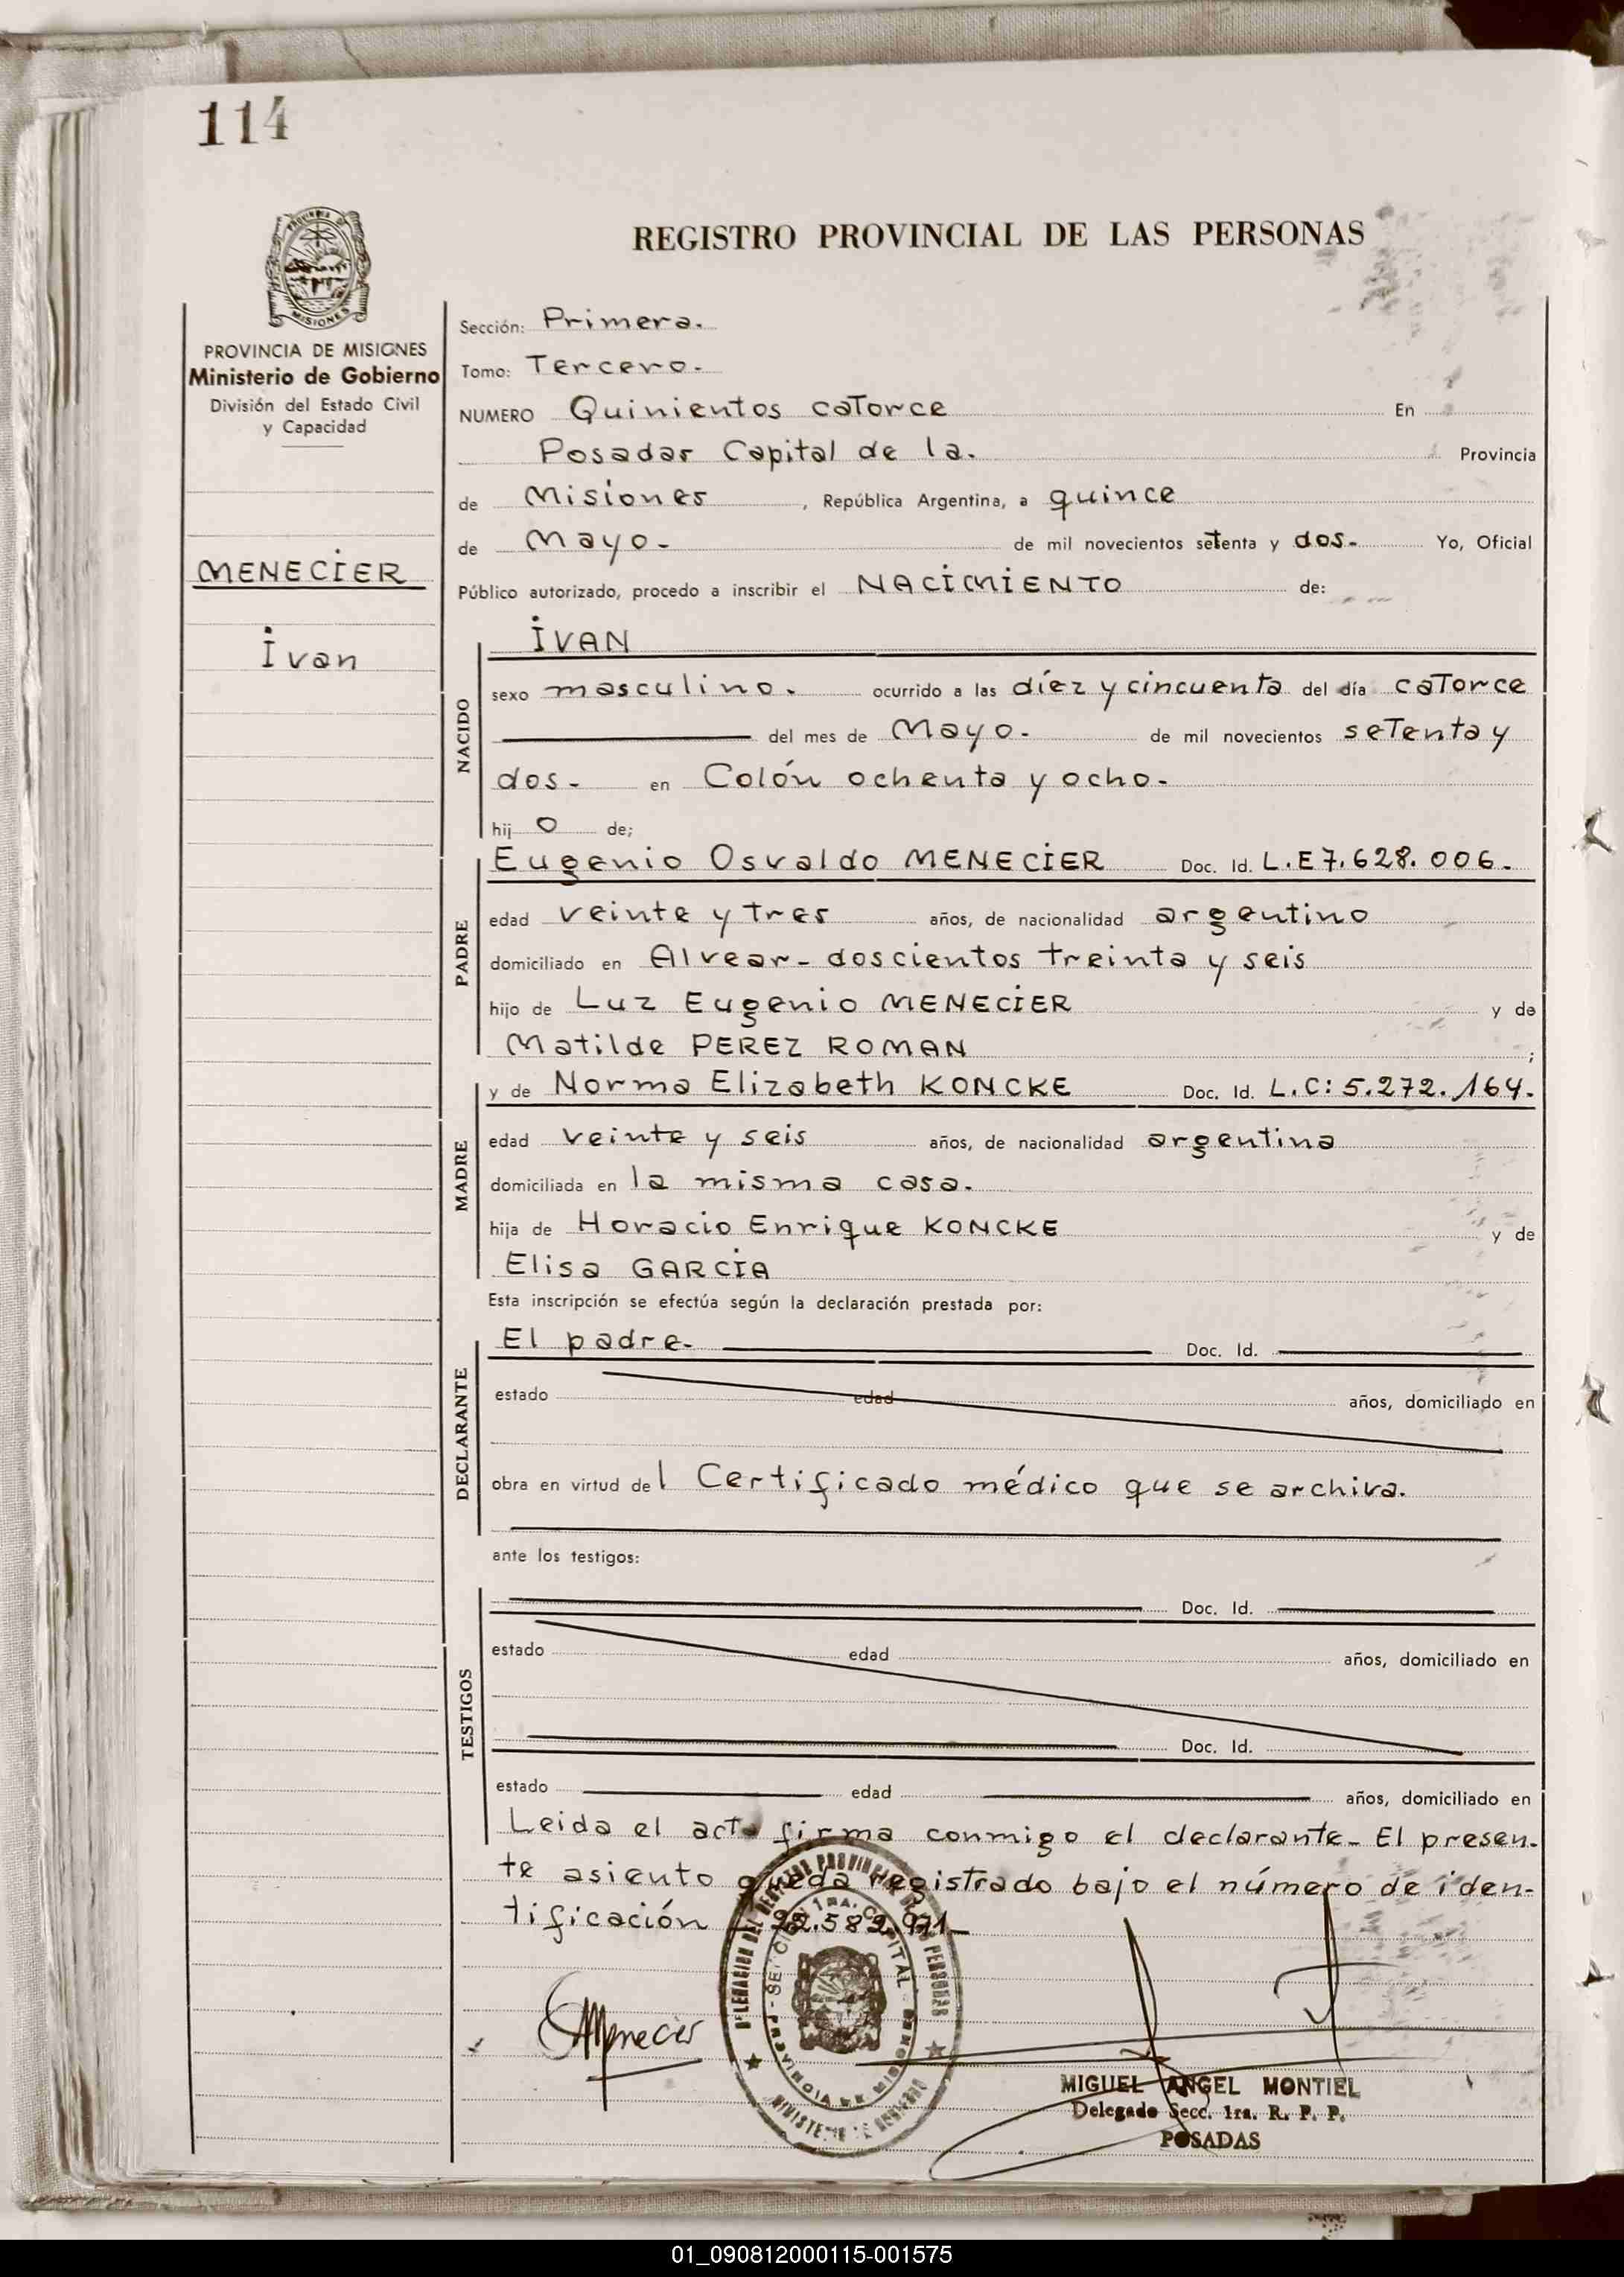 114
PROVINCIA DE MISIONES
Ministerio de Gobierno
División del Estado Civil
y Capacidad
MENECIER
Ivan
REGISTRO PROVINCIAL DE LAS PERSONAS
Sección: Primera.
Tomo: Tercero.
NUMERO Quinientos catorce En
Posadas Capital de la. Provincia
de Misiones, República Argentina, a quince
de Mayo. de mil novecientos setenta y dos. Yo, Oficial
Público autorizado, procedo a inscribir el NACIMIENTO de:
NACIDO
IVAN
sexo masculino. ocurrido a las díez y cincuenta del día catorce
del mes de Mayo. de mil novecientos setenta y
dos. en Colón ochenta y ocho.
hij o de;
PADRE
Eugenio Osvaldo MENECIER Doc. Id. L.E 7.628.006.
edad veinte y tres años, de nacionalidad argentino
domiciliado en Alvear- doscientos treinta y seis
hijo de Luz Eugenio MENECIER y de
Matilde PEREZ ROMAN;
MADRE
y de Norma Elizabeth KONCKE Doc. Id. L.C: 5.272.164.
edad veinte y seis años, de nacionalidad argentina
domiciliada en la misma casa.
hija de Horacio Enrique KONCKE y de
Elisa GARCIA
Esta inscripción se efectúa según la declaración prestada por:
DECLARANTE
El padre. Doc. Id.
estado edad años, domiciliado en
obra en virtud del Certificado médico que se archiva.
ante los testigos:
TESTIGOS
Doc. Id.
estado edad años, domiciliado en
Doc. Id.
estado edad años, domiciliado en
Leida el acta firma conmigo el declarante- El presen-
te asiento queda registrado bajo el número de iden-
tificación
Menecier
SECCION 1RA. CAPITAL
PROVINCIA DE MISIONES
MINISTERIO DE GOBIERNO
MIGUEL ANGEL MONTIEL
Delegado Secc. 1ra. R. P. P.
POSADAS
01_090812000115-001575